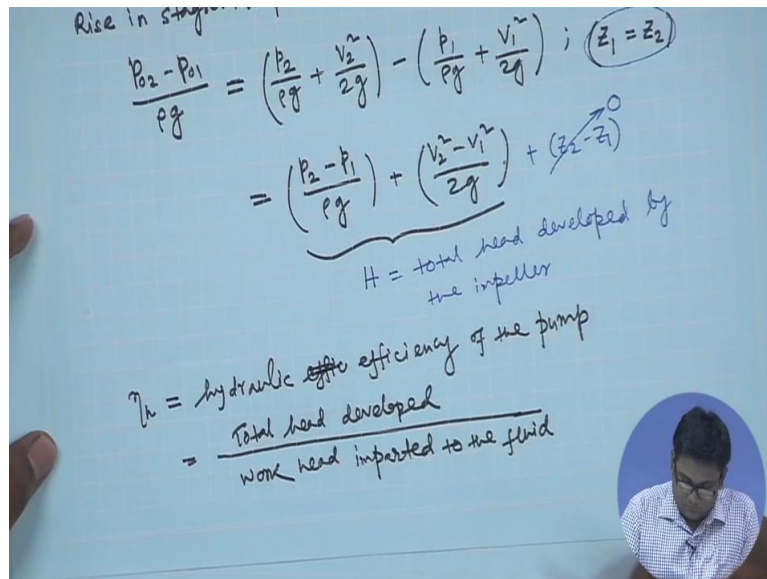 Rise in
(p02 - p01)/ρg = (p2/ρg + V2²/2g) - (p1/ρg + V1²/2g) ; (Z1 = Z2)
= ((p2 - p1)/ρg) + ((V2² - V1²)/2g) + (Z2 - Z1) 0
H = total head developed by
the impeller
ηh = hydraulic efficiency of the pump
= Total head developed
work head imparted to the fluid